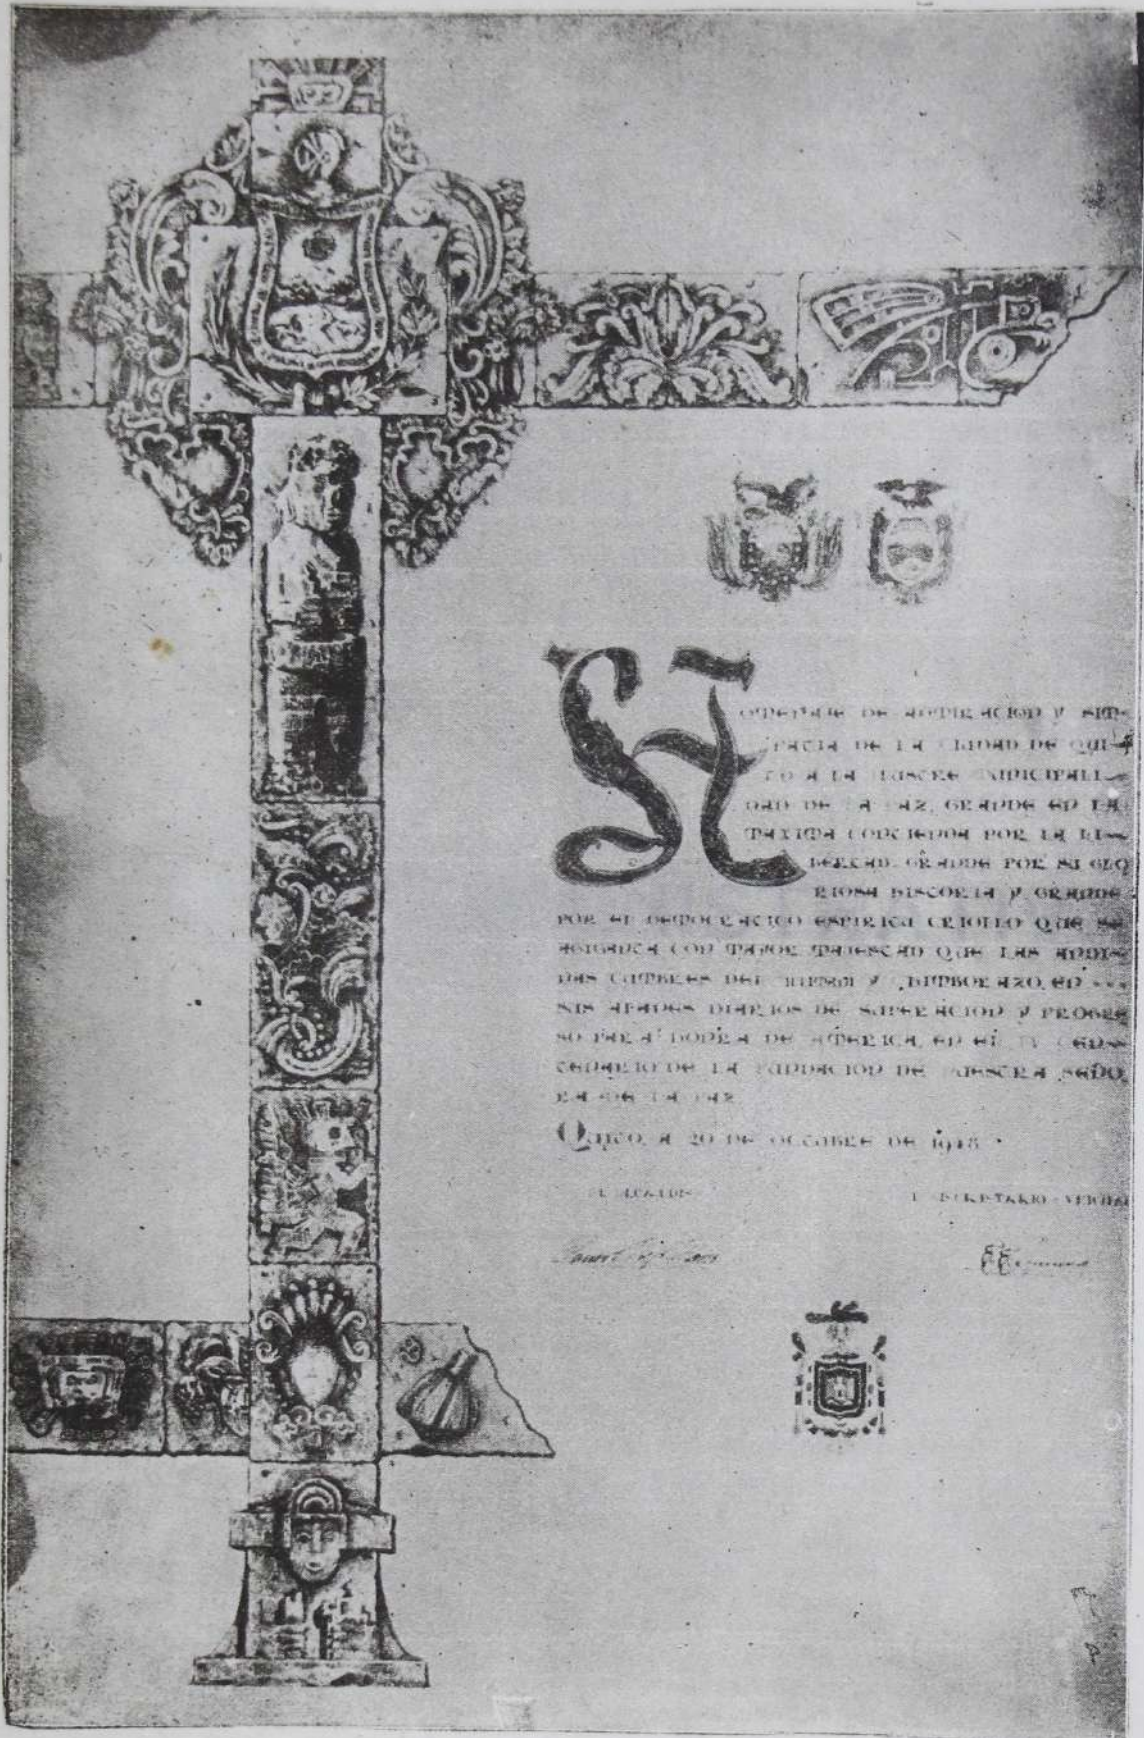 HOMENAJE DE ADMIRACION Y SIM-
PATIA DE LA CIUDAD DE QUI-
TO A LA ILUSTRE MUNICIPALI-
DAD DE LA PAZ, GRANDE EN LA
MAXIMA CONTIENDA POR LA LI-
BERTAD, GRANDE POR SU GLO
RIOSA HISTORIA Y GRANDE
POR EL DEMOCRATICO ESPIRITU CRIOLLO QUE SE
AGIGANTA CON MAYOR MAJESTAD QUE LAS ANDI-
NAS CUMBRES DEL ILLIMANI Y CHIMBORAZO, EN
SUS AFANES DIARIOS DE SUPERACION Y PROGRE
SO PARA HONRA DE AMERICA, EN EL IV CEN-
TENARIO DE LA FUNDACION DE NUESTRA SEÑO
RA DE LA PAZ
QUITO, A 20 DE OCTUBRE DE 1948
EL ALCALDE
EL SECRETARIO